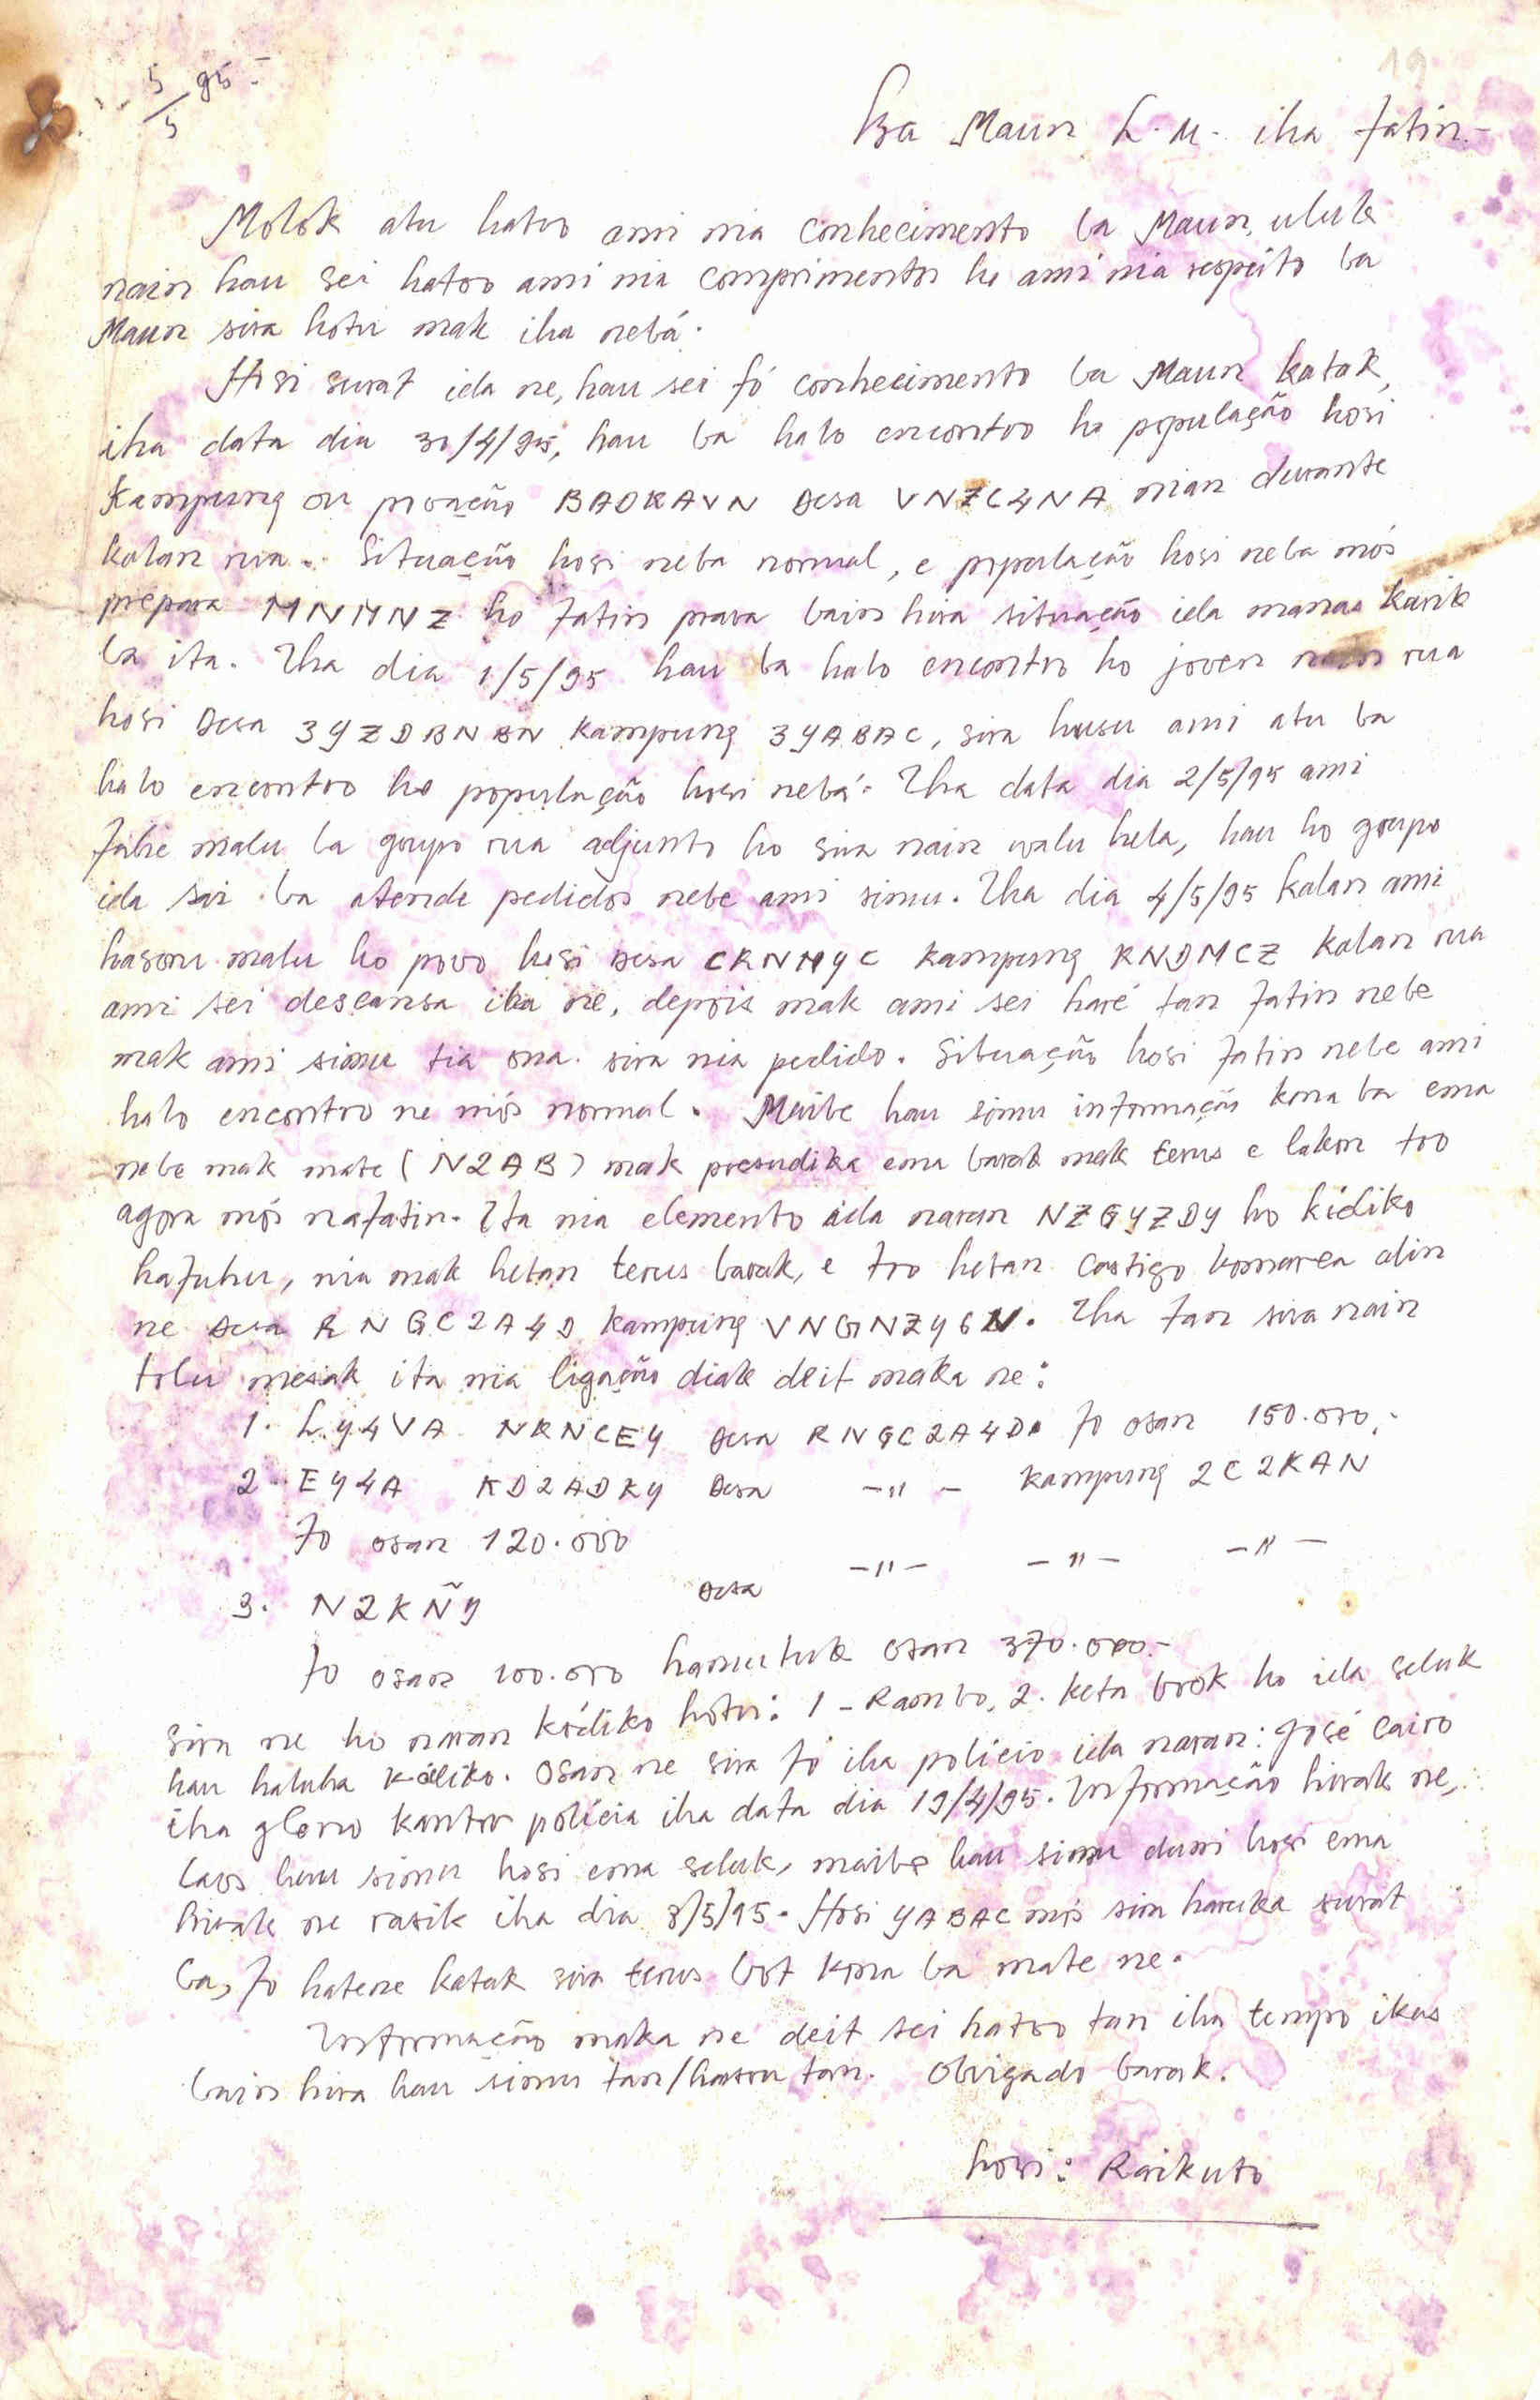 19
5/5 95-
Ba Maun L.M. iha fatin.-
Molok atu hatoo ami nia conhecimento ba Maun, uluk
nain hau sei hatoo ami nia comprimentos ho ami nia respeito ba
Maun sira hotu mak iha nebá.
Hosi surat ida ne, hau sei fó conhecimento ba Maun katak,
iha data dia 30/4/95, hau ba halo encontro ho população hosi
Kampung ou poração BADRAVN Desa VNZC4NA nian durante
kalan rua. Situação hosi neba normal, e população hosi neba mós
prepara MNMNZ ho fatin para bain hira situação ida manas karik
ba ita. Iha dia 1/5/95 hau ba halo encontro ho joven nain rua
hosi Desa 3YZDBNBN Kampung 3YABAC, sira husu ami atu ba
halo encontro ho população hosi nebá. Iha data dia 2/5/95 ami
fahe malu ba grupo rua adjunto ho sira nain walu hela, hau ho grupo
ida sai ba atende pedidos nebe ami simu. Iha dia 4/5/95 kalan ami
hasoru malu ho povo hosi Desa CRNMYC Kampung RNDMCZ kalan rua
ami sei descansa iha ne, depois mak ami sei haré tan fatin nebe
mak ami simu tia ona sira nia pedido. Situação hosi fatin nebe ami
halo encontro ne mós normal. Maibe hau simu informação kona ba ema
nebe mak mate (N2AB) mak presudika ema barak mak terus e lakon too
agora mós nafatin. Ita nia elemento ida naran NZGYZDY ho kódiko
hafuhu, nia mak hetan terus barak, e too hetan castigo komarca alin
ne Desa RNGC2A4D Kampung VNGNZY6N. Iha tan sira nain
tolu mesak ita nia ligação diak deit maka ne:
1. LY4VA NRNCEY Desa RNGC2A4D. fo osan 150.000,-
2. EY4A KD2ADRY Desa -"- Kampung 2C2KAN
fo osan 120.000
3. N2KÑY Desa -"- -"- -"-
fo osan 100.000 hamutuk osan 370.000.-
sira ne ho naran kódiko hotu: 1 - Rambo, 2. Keta brok ho ida seluk
hau haluha kódiko. Osan ne sira fó iha polícia ida naran: José Cairo
iha gleno kantor polícia iha data dia 19/4/95. Informação hirak ne,
laos hau simu hosi ema seluk, maibe hau simu duni hosi ema
hirak ne rasik iha dia 8/5/95. Hosi YABAC mós sira haruka surat
ba, fo hatene katak sira terus bot kona ba mate ne.
Informação maka ne deit sei hatoo tan iha tempo ikus
bain hira hau simu tan/hasoru tan. Obrigado barak.
hosi: Raikuto